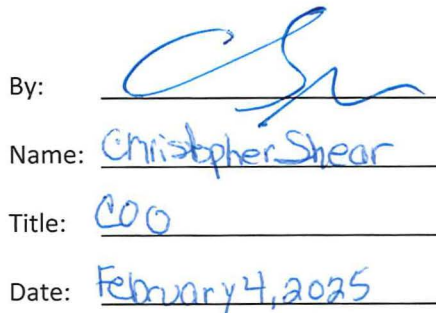 By:
Name: Christopher Shear
Title: COO
Date: February 4, 2025